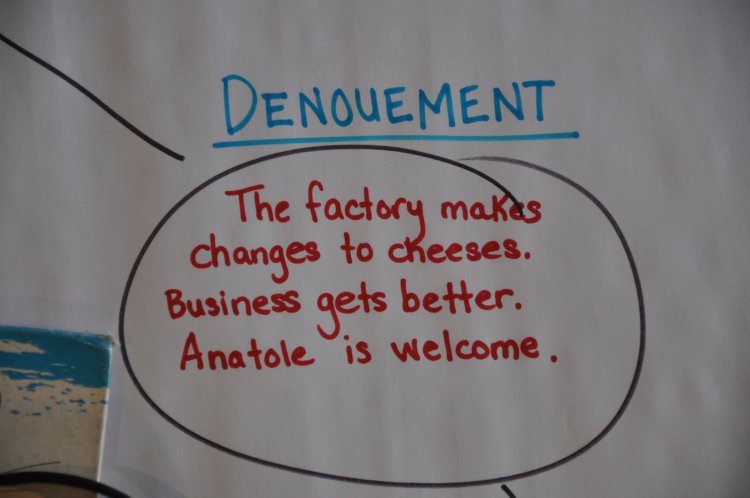 DENOUEMENT
The factory makes
changes to cheeses.
Business gets better.
Anatole is welcome.